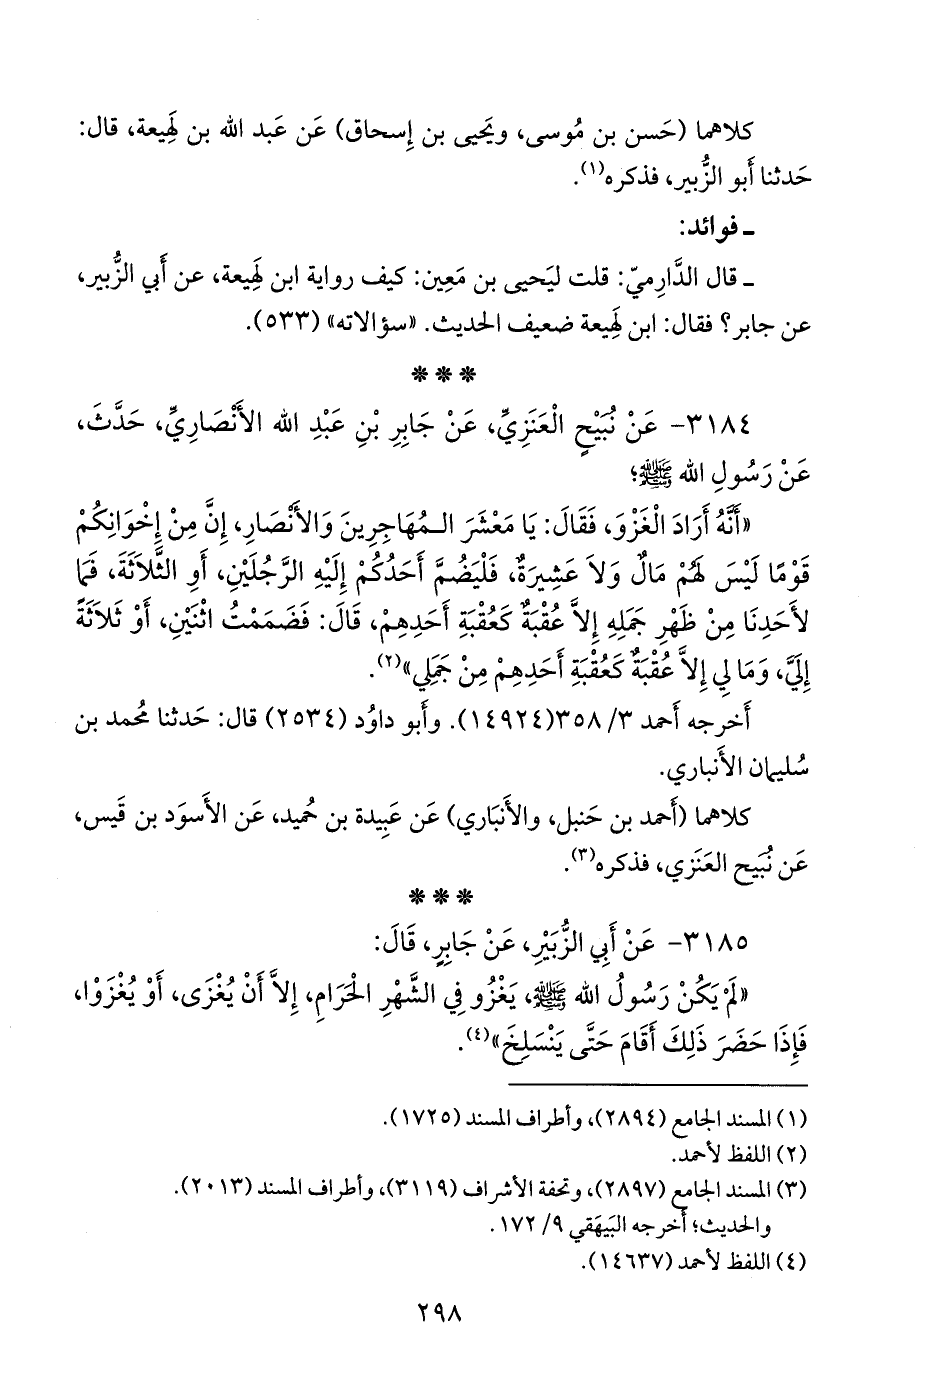 كلاهما (حَسن بن مُوسى، ويَحيى بن إِسحاق) عَن عَبد الله بن لَهِيعة، قال:
حَدثنا أَبو الزُّبير، فذكره(١).
ـ فوائد:
ـ قال الدَّارِميّ: قلت ليَحيى بن مَعِين: كيف رواية ابن لَهِيعة، عن أَبي الزُّبير،
عن جابر؟ فقال: ابن لَهِيعة ضعيف الحديث. «سؤالاته» (٥٣٣).
* * *
٣١٨٤- عَنْ نُبَيْحٍ الْعَنَزِيِّ، عَنْ جَابِرِ بْنِ عَبْدِ الله الأَنْصَارِيِّ، حَدَّثَ،
عَنْ رَسُولِ الله ﷺ؛
«أَنَّهُ أَرَادَ الْغَزْوَ، فَقَالَ: يَا مَعْشَرَ الـمُهَاجِرِينَ وَالأَنْصَارِ، إِنَّ مِنْ إِخْوَانِكُمْ
قَوْمًا لَيْسَ لَهُمْ مَالٌ وَلاَ عَشِيرَةٌ، فَلْيَضُمَّ أَحَدُكُمْ إِلَيْهِ الرَّجُلَيْنِ، أَوِ الثَّلاَثَةَ، فَمَا
لأَحَدِنَا مِنْ ظَهْرِ جَمَلِهِ إِلاَّ عُقْبَةٌ كَعُقْبَةِ أَحَدِهِمْ، قَالَ: فَضَمَمْتُ اثْنَيْنِ، أَوْ ثَلاَثَةً
إِلَيَّ، وَمَا لِي إِلاَّ عُقْبَةٌ كَعُقْبَةِ أَحَدِهِمْ مِنْ جَمَلِي»(٢).
أَخرجه أَحمد ٣/ ٣٥٨(١٤٩٢٤). وأَبو داوُد (٢٥٣٤) قال: حَدثنا مُحمد بن
سُليمان الأَنباري.
كلاهما (أَحمد بن حَنبل، والأَنبَاري) عَن عَبِيدة بن حُميد، عَن الأَسوَد بن قَيس،
عَن نُبَيح العَنَزي، فذكره(٣).
* * *
٣١٨٥- عَنْ أَبِي الزُّبَيْرِ، عَنْ جَابِرٍ، قَالَ:
«لَمْ يَكُنْ رَسُولُ الله ﷺ، يَغْزُو فِي الشَّهْرِ الْحَرَامِ، إِلاَّ أَنْ يُغْزَى، أَوْ يُغْزَوْا،
فَإِذَا حَضَرَ ذَلِكَ أَقَامَ حَتَّى يَنْسَلِخَ»(٤).
(١) المسند الجامع (٢٨٩٤)، وأطراف المسند (١٧٢٥).
(٢) اللفظ لأحمد.
(٣) المسند الجامع (٢٨٩٧)، وتحفة الأشراف (٣١١٩)، وأطراف المسند (٢٠١٣).
والحديث؛ أخرجه البَيهَقي ٩/ ١٧٢.
(٤) اللفظ لأحمد (١٤٦٣٧).
٢٩٨